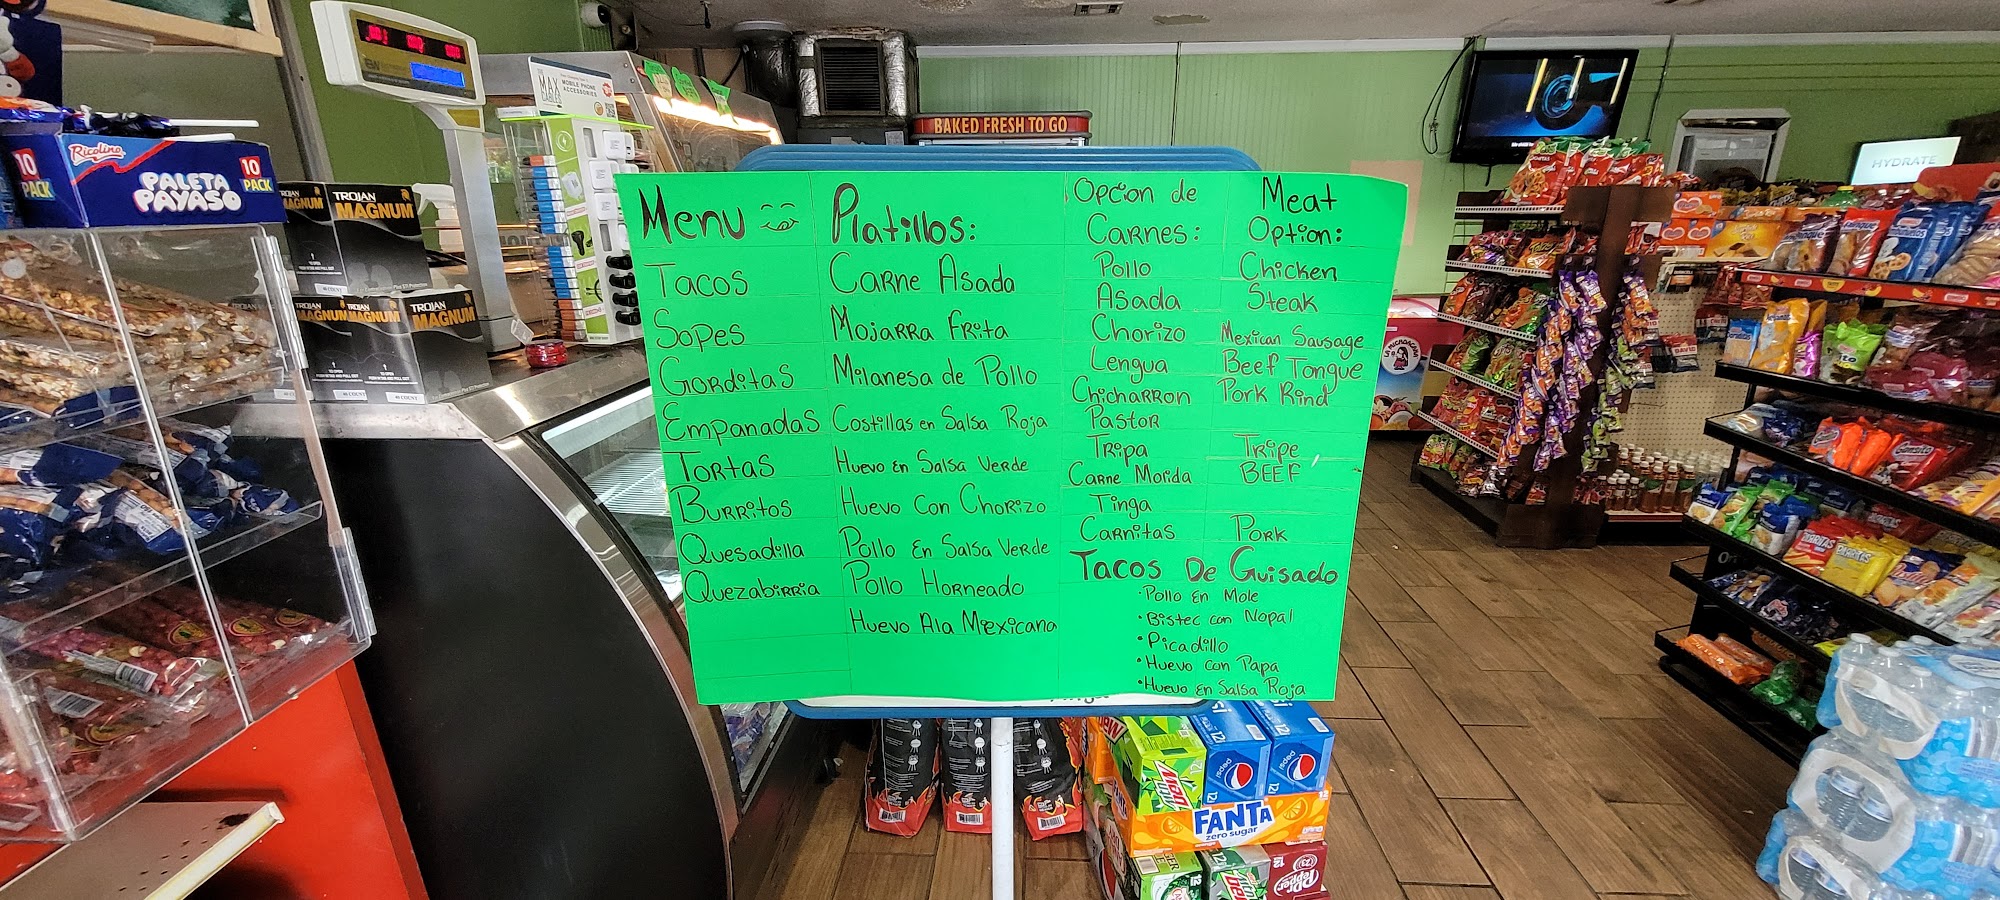 Menu
Tacos
Sopes
Gorditas
Empanadas
Tortas
Burritos
Quesadilla
Quezabirria
Platillos:
Carne Asada
Mojarra Frita
Milanesa de Pollo
Costillas en Salsa Roja
Huevo en Salsa Verde
Huevo Con Chorizo
Pollo En Salsa Verde
Pollo Horneado
Huevo Ala Mexicana
Opcion de
Carnes:
Pollo
Asada
Chorizo
Lengua
Chicharron
Pastor
Tripa
Carne Molida
Tinga
Carnitas
Meat
Option:
Chicken
Steak
Mexican Sausage
Beef Tongue
Pork Rind
Tripe
BEEF
Pork
Tacos De Guisado
·Pollo En Mole
·Bistec con Nopal
·Picadillo
·Huevo con Papa
·Huevo En Salsa Roja
BAKED FRESH TO GO
HYDRATE
MAX
MOBILE PHONE
ACCESSORIES
Ricolino
10
PACK
PALETA
PAYASO
10
PACK
TROJAN
MAGNUM
TROJAN
MAGNUM
TROJAN
MAGNUM
40 COUNT
pepsi
pepsi
FANTA
zero sugar
Dr Pepper